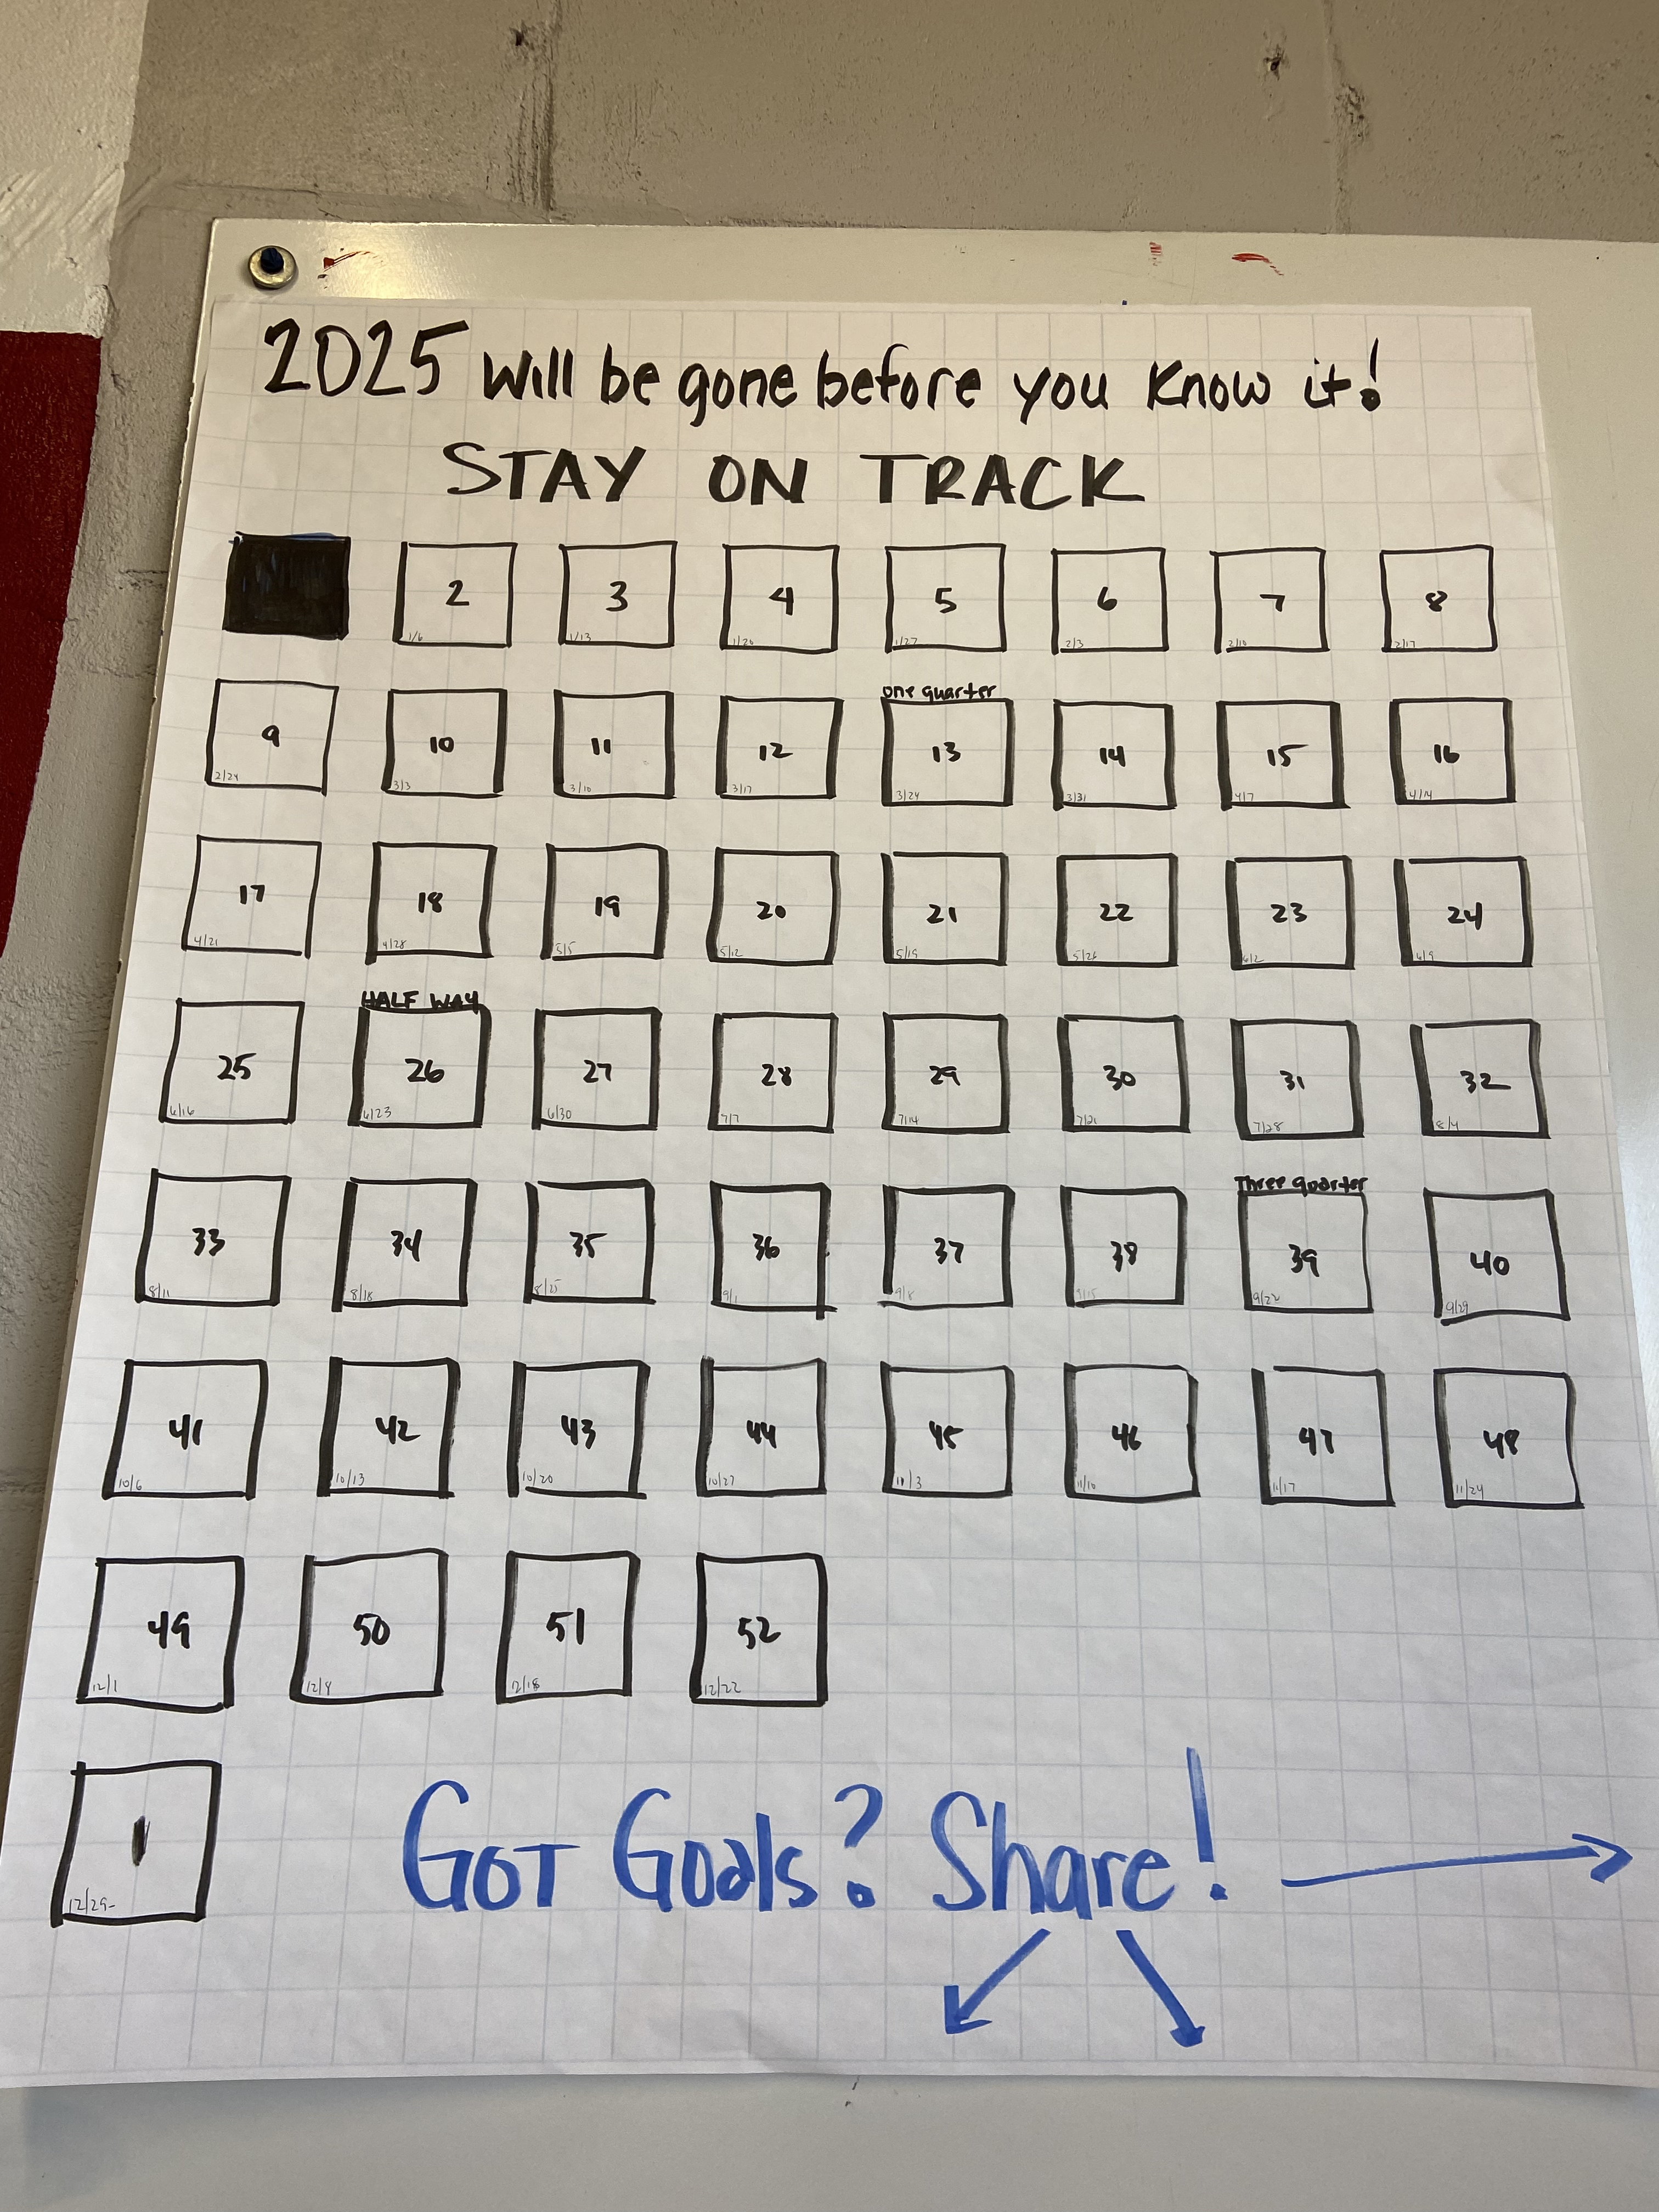 2025 Will be gone before you Know it!
STAY ON TRACK
2 3 4 5 6 7 8
1/6 1/13 1/20 1/27 2/3 2/10 2/17
one quarter
9 10 11 12 13 14 15 16
2/24 3/3 3/10 3/17 3/24 3/31 4/7 4/14
17 18 19 20 21 22 23 24
4/21 4/28 5/5 5/12 5/19 5/26 6/2 6/9
HALF WAY
25 26 27 28 29 30 31 32
6/16 6/23 6/30 7/7 7/14 7/21 7/28 8/4
Three quarter
33 34 35 36 37 38 39 40
8/11 8/18 8/25 9/1 9/8 9/15 9/22 9/29
41 42 43 44 45 46 47 48
10/6 10/13 10/20 10/27 11/3 11/10 11/17 11/24
49 50 51 52
12/1 12/18 12/22
1
12/29-
GOT Goals? Share!